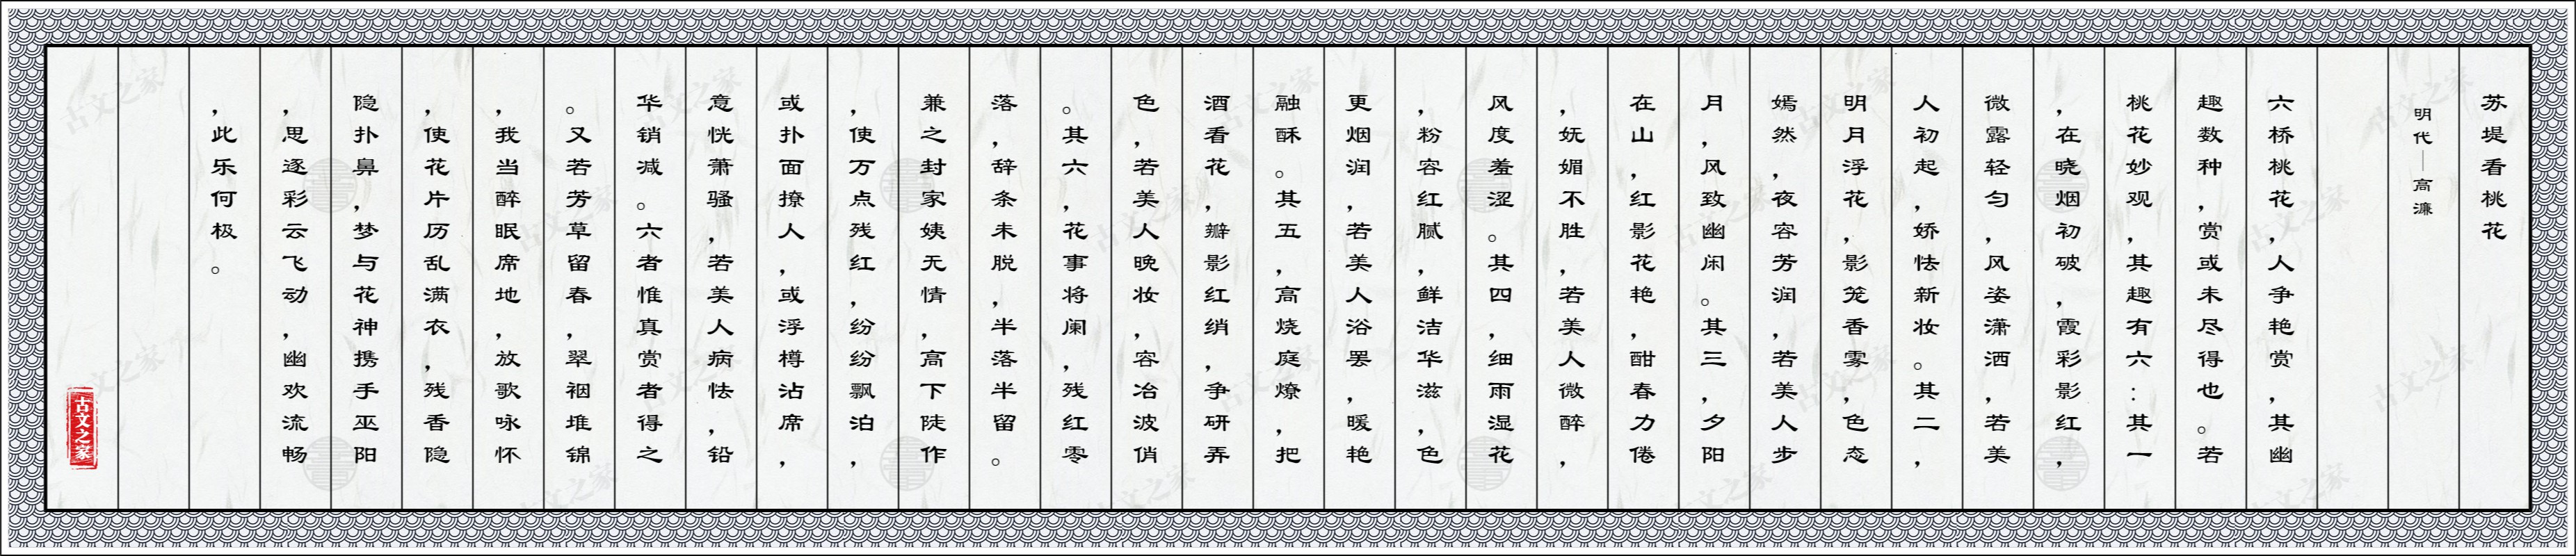 苏堤看桃花
明代——高濂
六桥桃花，人争艳赏，其幽
趣数种，赏或未尽得也。若
桃花妙观，其趣有六：其一
，在晓烟初破，霞彩影红，
微露轻匀，风姿潇洒，若美
人初起，娇怯新妆。其二，
明月浮花，影笼香雾，色态
嫣然，夜容芳润，若美人步
月，风致幽闲。其三，夕阳
在山，红影花艳，酣春力倦
，妩媚不胜，若美人微醉，
风度羞涩。其四，细雨湿花
，粉容红腻，鲜洁华滋，色
更烟润，若美人浴罢，暖艳
融酥。其五，高烧庭燎，把
酒看花，瓣影红绡，争研弄
色，若美人晚妆，容冶波俏
。其六，花事将阑，残红零
落，辞条未脱，半落半留。
兼之封家姨无情，高下陡作
，使万点残红，纷纷飘泊，
或扑面撩人，或浮樽沾席，
意恍萧骚，若美人病怯，铅
华销减。六者惟真赏者得之
。又若芳草留春，翠裀堆锦
，我当醉眠席地，放歌咏怀
，使花片历乱满衣，残香隐
隐扑鼻，梦与花神携手巫阳
，思逐彩云飞动，幽欢流畅
，此乐何极。
古文之家